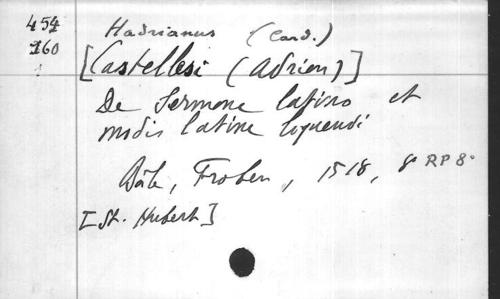 454 Hadrianus (Card.)
160 [Castellesi (Adrien)]
De Sermone latino et
modis latine loquendi
Bâle, Froben, 1518, 8° RP 8°
[St. Hubert]